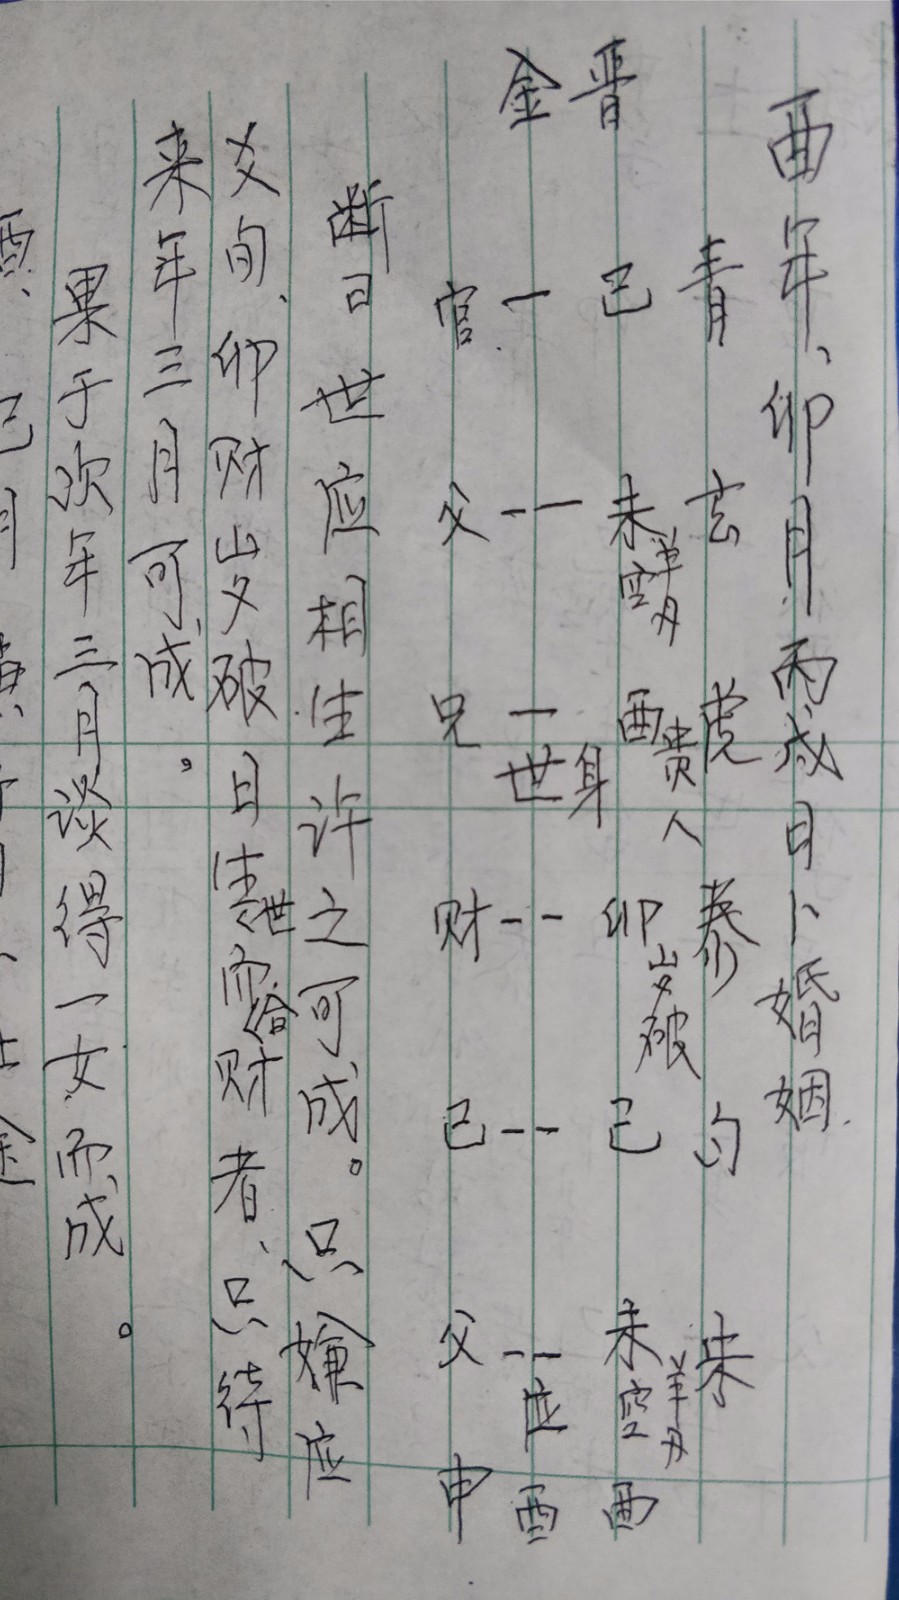 酉年、卯月丙戌日卜婚姻.
青 玄 虎 泰 勾 朱
晋 巳 未 空 羊刃 酉 贵人 身 卯 岁破 己 未 空 羊刃 酉
金 一 -- 一 世 -- -- -- 应 酉
官 父 兄 财 己 父 申
断曰世应相生许之可成。只嫌应
爻旬、卯财岁破日生世而合财者、只待
来年三月可成。
果于次年三月谈得一女而成。